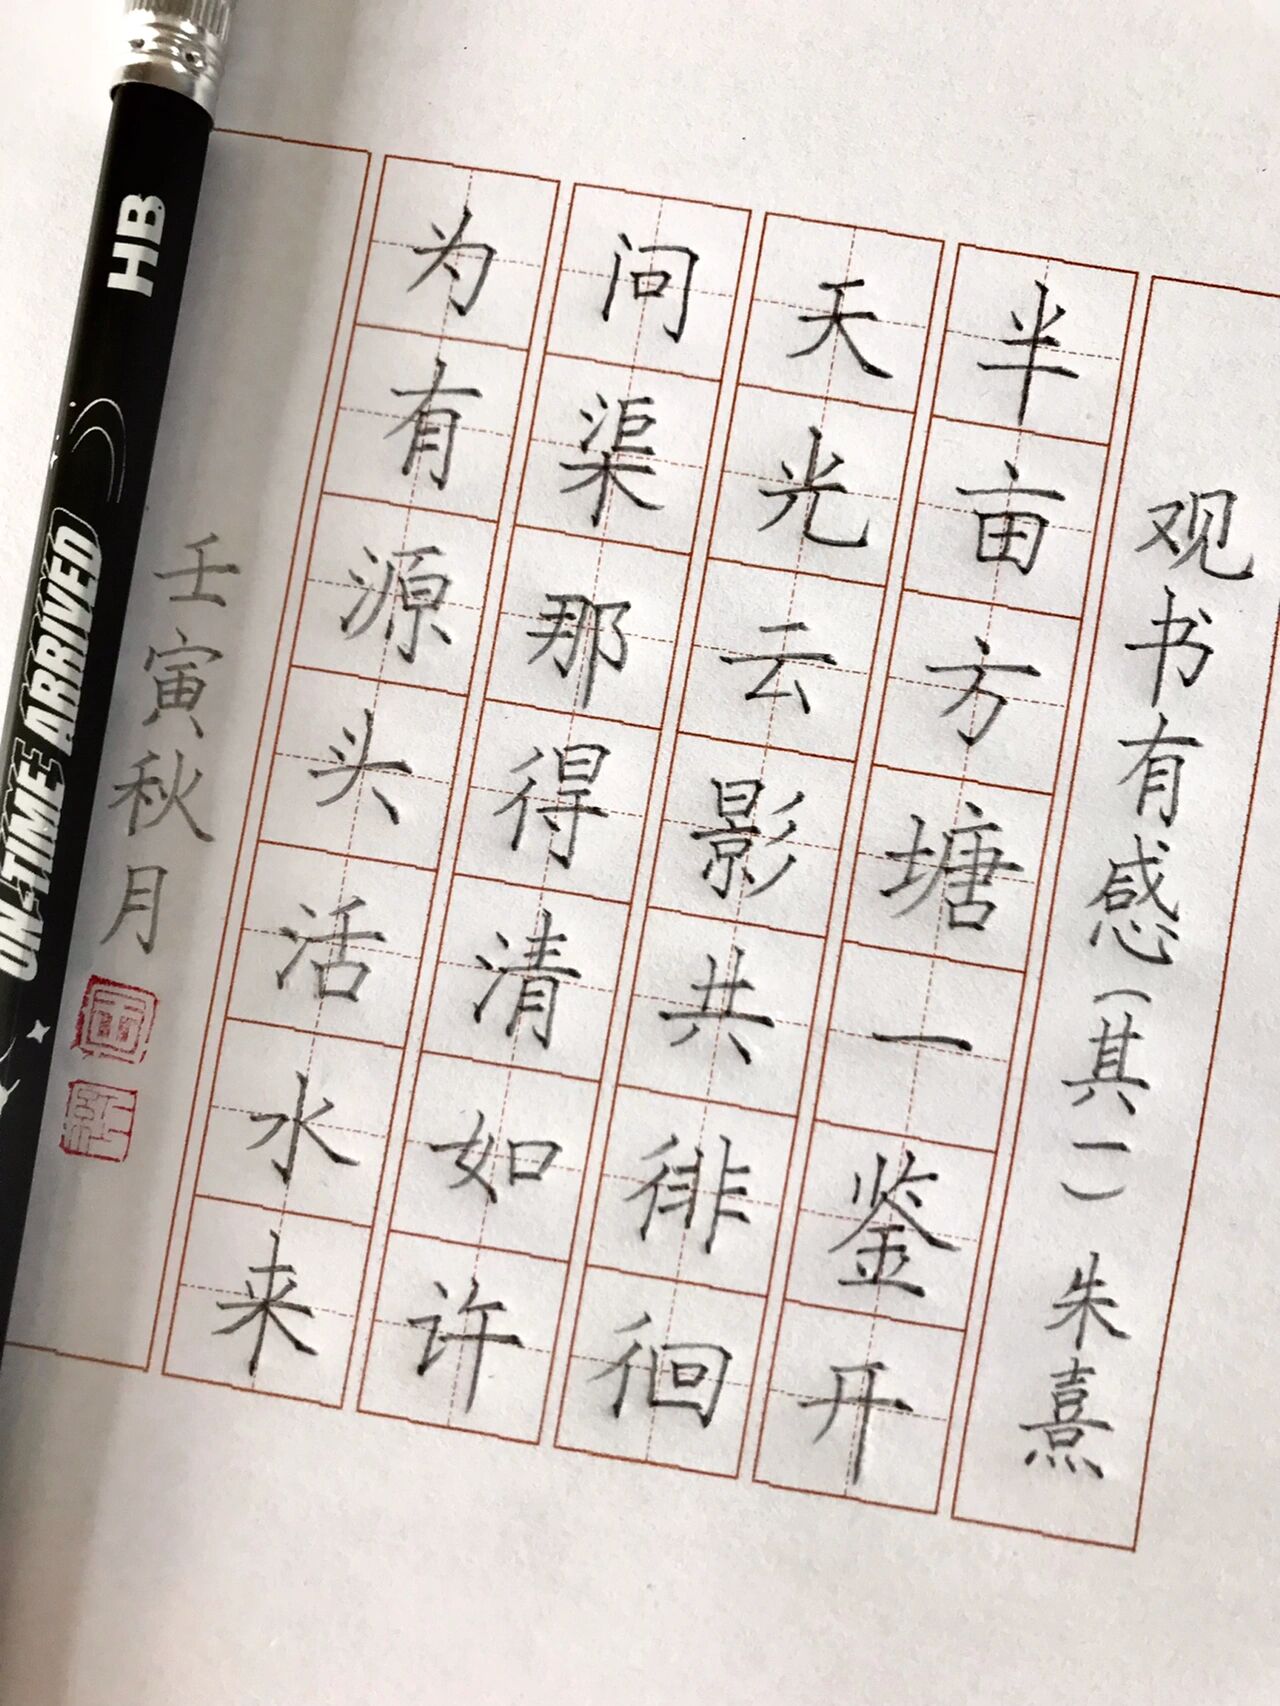 观书有感（其一） 朱熹
半亩方塘一鉴开
天光云影共徘徊
问渠那得清如许
为有源头活水来
壬寅秋月
HB
ON-TIME ARRIVED